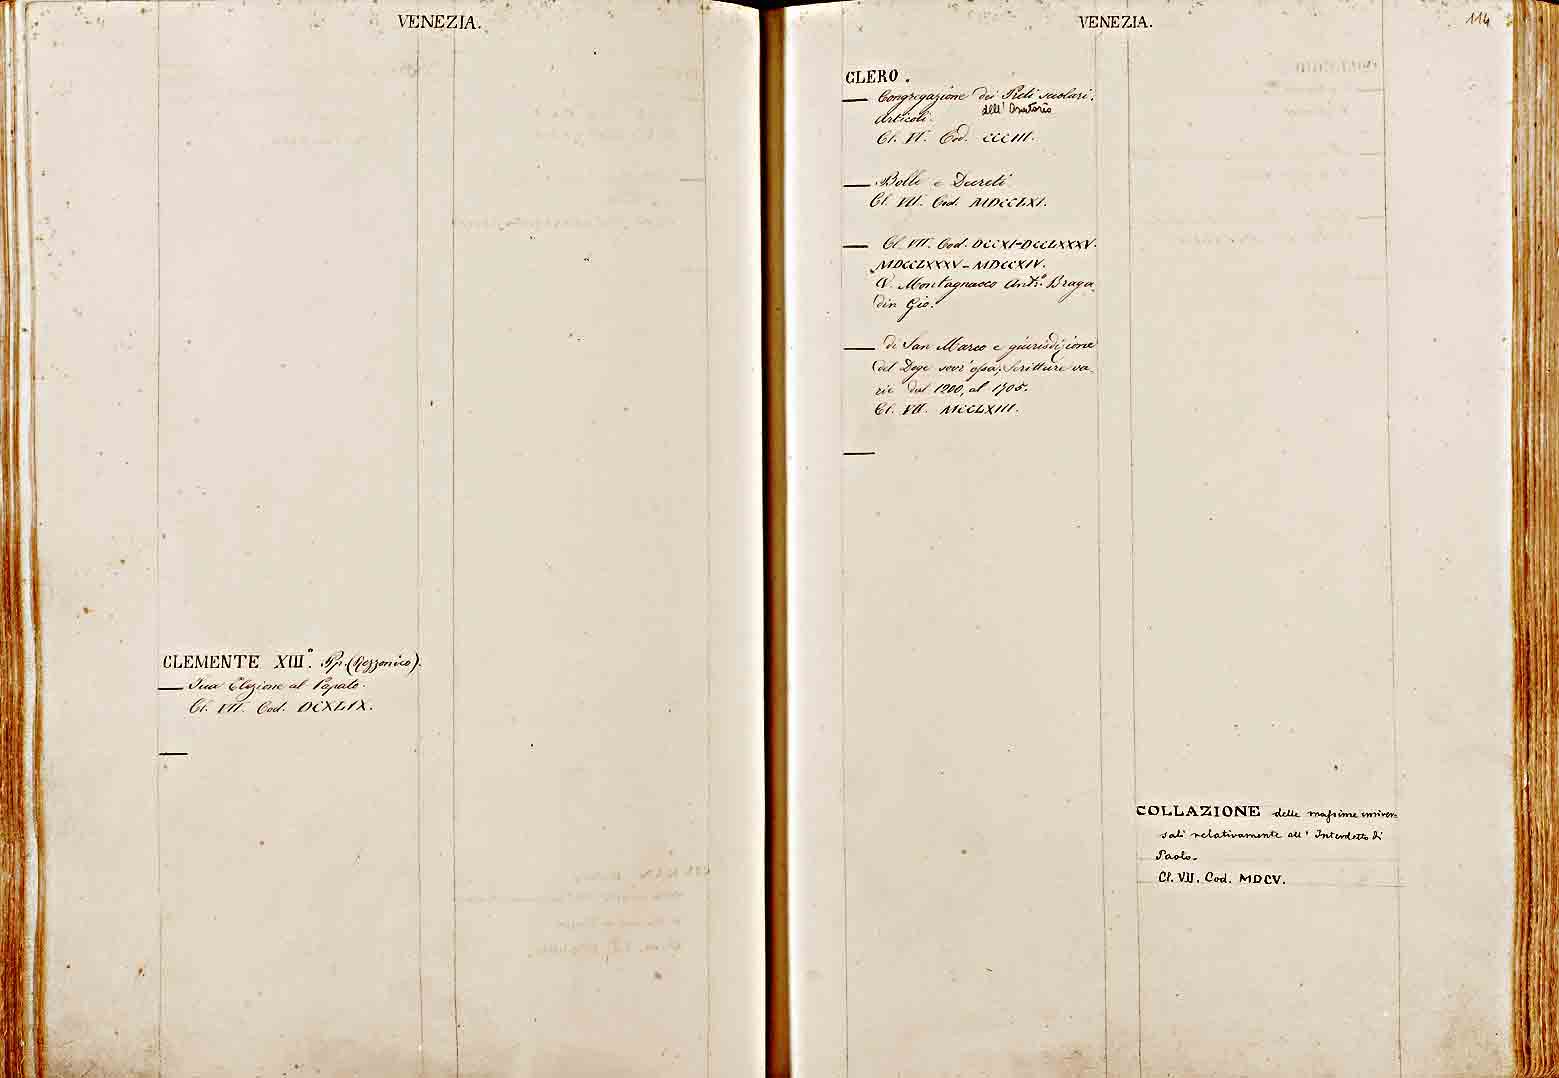 VENEZIA.
CLEMENTE XIIIº. Pp. (Rezzonico).
— Sua Elezione al Papato.
Cl. VII. Cod. DCXLIX.
—
VENEZIA.
114
CLERO.
— Congregazione dei Preti secolari.
dell' Oratorio
Articoli.
Cl. VI. Cod. CCCIII.
— Bolle e Decreti
Cl. VII. Cod. MDCCLXI.
— Cl. VII. Cod. DCCXI-DCCLXXXV.
MDCCLXXXV - MDCCXIV.
V. Montagnacco Antº. Braga-
din Gio.
— di San Marco e giurisdizione
del Doge sovr' essa; Scritture va-
rie dal 1200, al 1705.
Cl. VII. MCCLXIII.
—
COLLAZIONE delle massime univer-
sali relativamente all' Interdetto di
Paolo.
Cl. VII. Cod. MDCV.